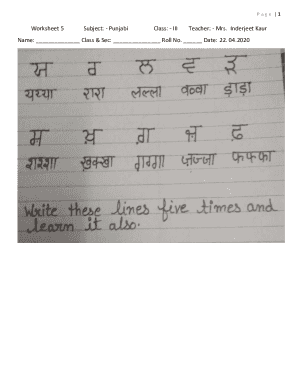 Page | 1
Worksheet 5 Subject: - Punjabi Class: - III Teacher: - Mrs. Inderjeet Kaur
Name: _______________ Class & Sec: _______________ Roll No. ______ Date: 22. 04.2020
ਯ ਰ ਲ ਵ ੜ
यय्या रारा लल्ला वव्वा ड़ाड़ा
ਸ਼ ਖ਼ ਗ਼ ਜ਼ ਫ਼
शश्शा ख़क्खा ग़ग्गा ज़ज्जा फफ्फा
Write these lines five times and
learn it also.